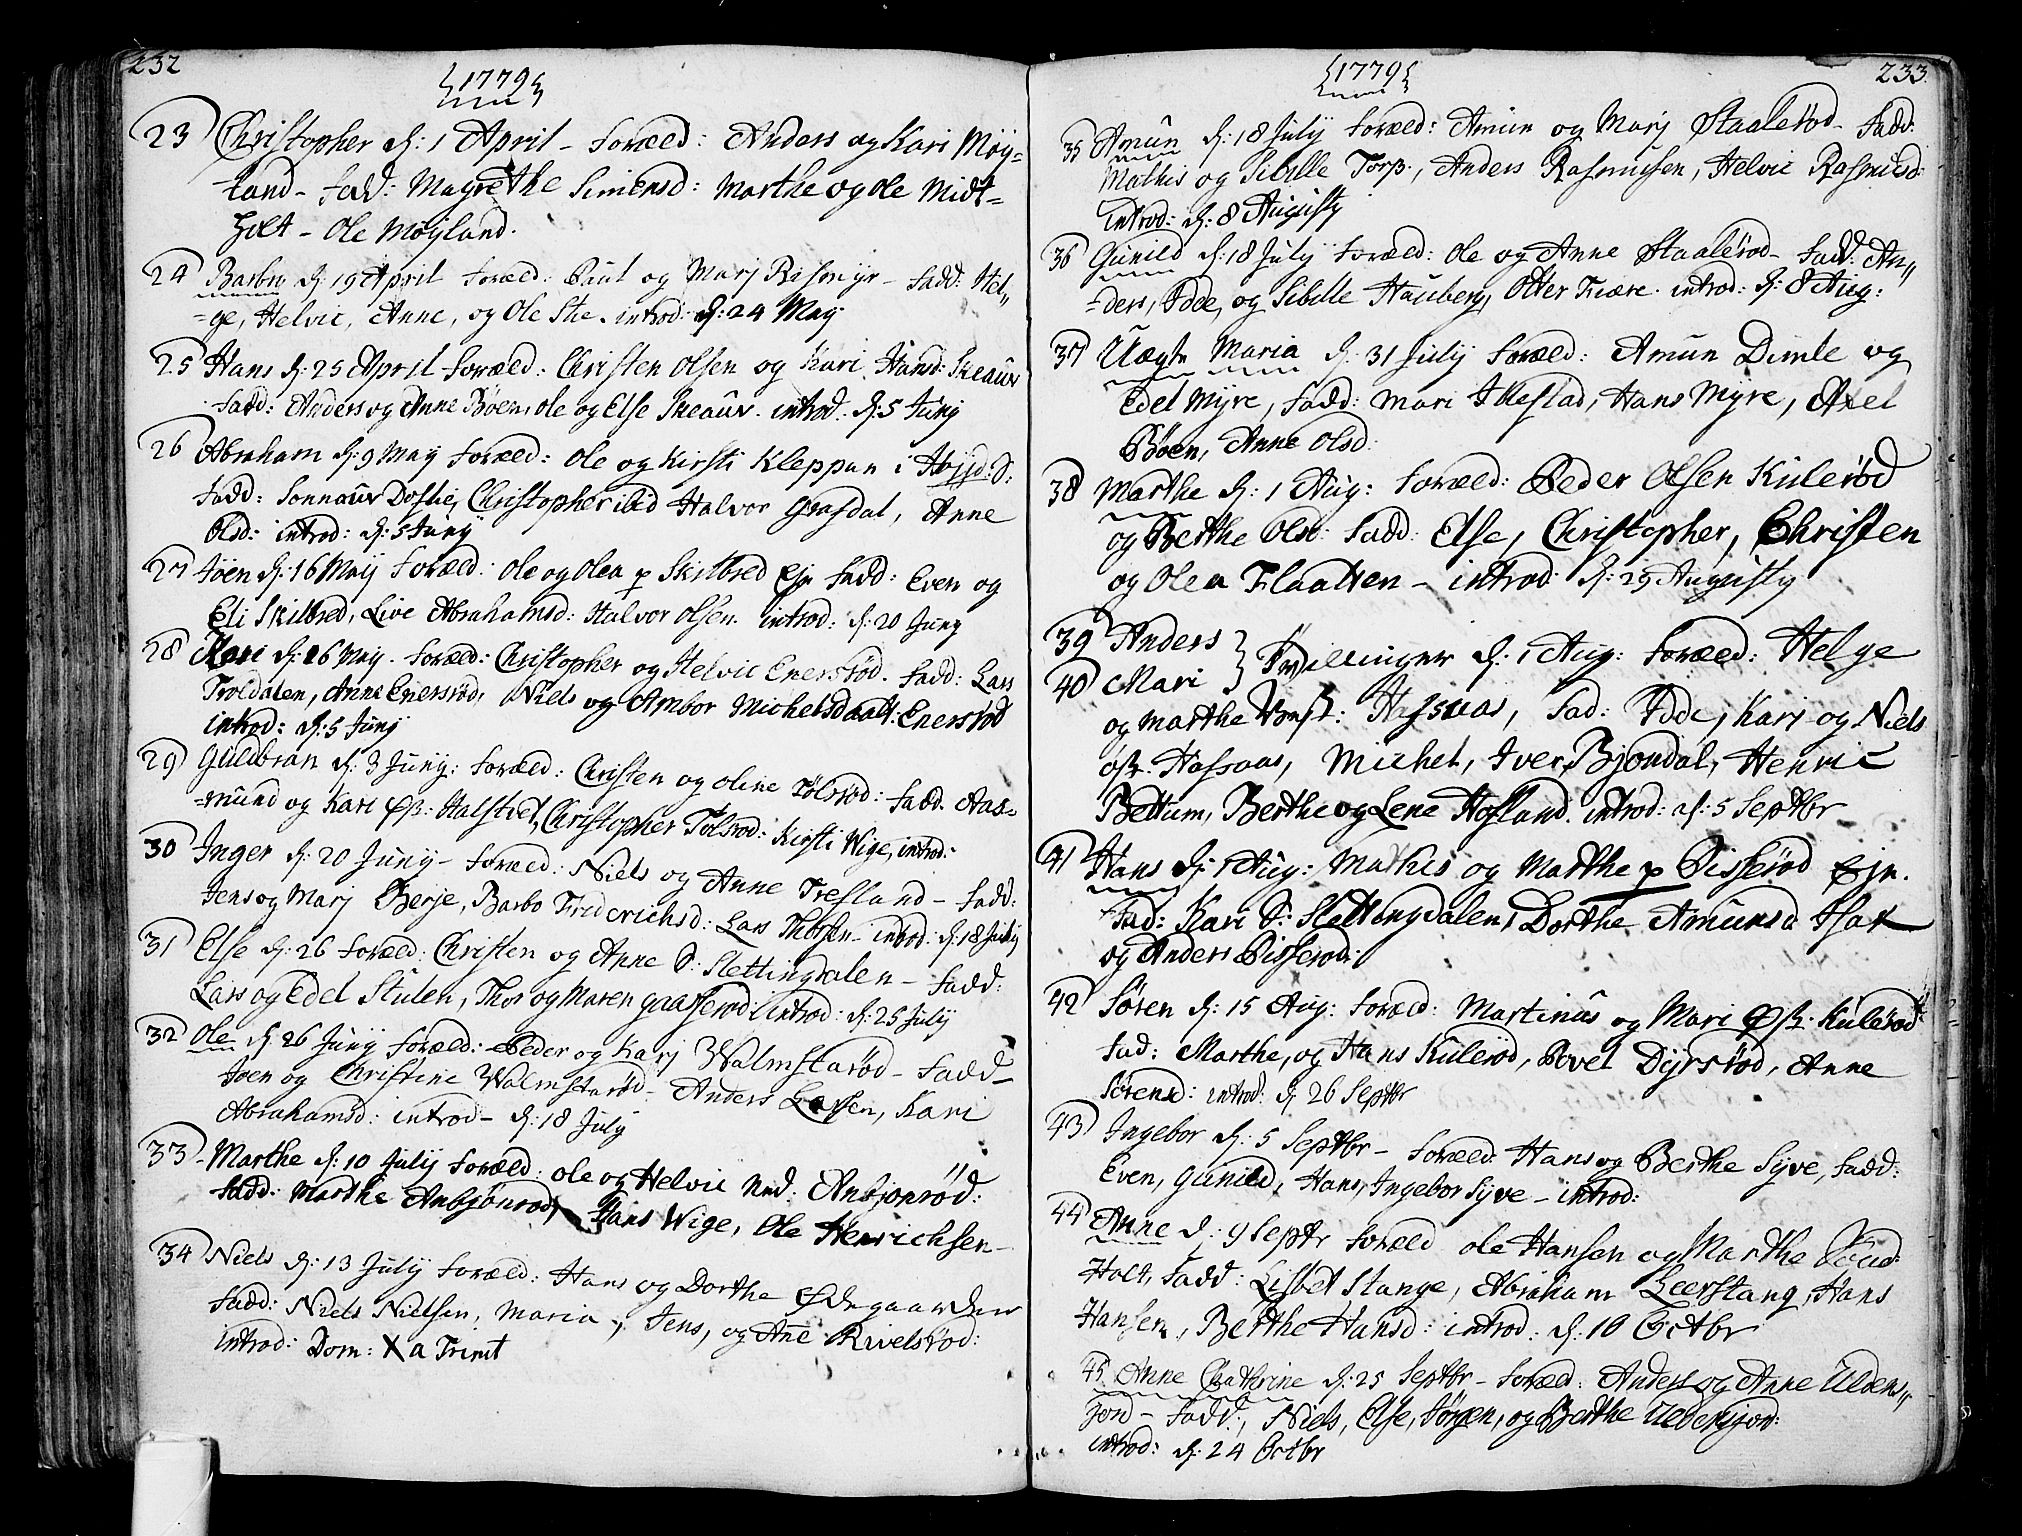 232
1779
23 Christopher d: 1 April - Foræld: Anders og Kari Møy=
land - Fadd: Magrethe Simensd: Marthe og Ole Midt=
holt - Ole Møyland.
24 Barbro d: 19 April Foræld: Paul og Marj Rismyr - Fadd: Hel„
=ge, Helvic, Anne, og Ole She. introd: d: 24 May
25 Hans d: 25 April Foræld: Christen Olsen og Kari Hansd: Skeauv
Fadd: Anders og Anne Bøen, ole og Else Skeauv. introd: d: 5 Juny
26 Abraham d: 9 May Foræld: Ole og Kirsti Kleppan i S:
Fadd: Sonnauv Dostie, Christopher ibid Halvor Grasdal, Anne
Olsd: introd: d: 5 Juny
27 Joen d: 16 May Foræld: Ole og Olea p Skilbred Ejr Fadd: Even og
Eli Skilbred, Live Abrahamsd: Halvor Olsen. introd: d: 20 Juny
28 Kari d: 16 May. Foræld: Christopher og Helvic Enersrød. Fadd: Lars
Troldalen, Anne Enersrød, Niels og Ambor Michelsdaatt: Enersrød
introd: d: 5 Juny
29 Guldbran d: 3 Juny: Foræld: Christen og Oline Tolsrød: Fadd. Aas=
=mund og Kari Øß: Halstvet, Christopher Tolsrød: Kirsti Wige, introd:
30 Inger d: 20 Juny - Foræld: Niels og Anne Tresland - Fadd:
Jens og Marj Berje, Barbo Friderichsd: Lars Thorsen - introd: d: 18 July
31 Else d: 26 Foræld: Christen og Anne S: Slettingdalen - Fadd:
Lars og Edel Stulen, Thor og Maren Gaasserød introd: d: 25 July
32 Ole d: 26 Juny Foræld: Peder og Karj Walmstarød - Fadd -
Joen og Christine Walmstarød - Anders Larsen, Kari
Abrahamsd: introd - d: 18 July
33 - Marthe d: 10 July Foræld: Ole og Helvic Ned: Anbjønrød:
Fadd: Marthe Anbjönrød, Hans Wige, Ole Henrichsen -
34 Niels d: 13 July Foræld: Hans og Dorthe Ødegaarden
Fadd: Niels Nielsen, Maria, Jens, og Ane Rivelsrød:
introd: Dom: X a Trinit
1779
233.
35 Amun d: 18 July Foræld: Amun og Marj Staalerød - Fadd:
Mathis og Sibille Torp, Anders Rasmusen, Helvic Rasmusd:
introd: d: 8 Augusty
36 Gunild d: 18 July Foræld: Ole og Anne Staalerød - Fadd: An„
=ders, Idde, og Sibille Hauberg, Otter Fiære. introd: d: 8 Aug:
37 Uægte Maria d: 31 July Foræld: Amun Dimle og
Edel Myre, Fadd: Mari Ikestad, Hans Myre, Axel
Bøen, Anne Olsd:
38 Marthe d: 1 Aug: Foræld: Peder Olsen Kulerød
og Berthe Olsd: Fadd: Else, Christopher, Christen
og Olea Flaatten - introd: d: 29 Augusty
39 Anders
40 Mari } Tvillinger d: 1 Aug: Foræld: Helge
og Marthe Vest: Hafsaas, Fad: Idde, Kari og Niels
øst: Hafsaas, Michel, Iver Bjondal, Henric
Bettum, Berthe og Lene Hofland. introd: d: 5 Septbr
41 Hans d: 1 Aug: Mathis og Marthe p Pisserød Ejr.
Fad: Kari S: Slettingdalen, Dorthe Amunsd Isak
og Anders Pisserød:
42 Søren d: 15 Aug: Foræld: Martinus og Mari Øß. Kulerød
Fad: Marthe, og Hans Kulerød, Povel Dyrsrød, Anne
Sørensd: introd: d: 26 Septbr
43 Ingebor d: 5 Septbr - Foræld: Hans og Berthe Syve, Fadd:
Even, Gunild, Hans, Ingebor Syve - introd:
44 Anne d: 9 Septr Foræld Ole Hansen og Marthe
Holt, Fadd: Lisbet Stange, Abraham Leerstang, Hans
Hansen, Berthe Hansd: introd: d: 10 Octbr
45 Anne Chathrine d: 25 Septbr - Foræld: Anders og Anne Uldens„
jord - Fadd:, Niels, Else, Jörgen, og Berthe Uldensjord:
introd: d: 24 Octbr